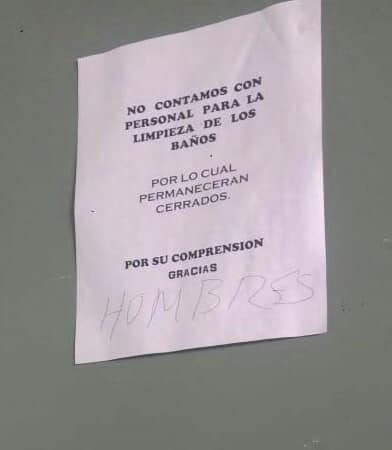 NO CONTAMOS CON
PERSONAL PARA LA
LIMPIEZA DE LOS
BAÑOS
POR LO CUAL
PERMANECERAN
CERRADOS.
POR SU COMPRENSION
GRACIAS
HOMBRES